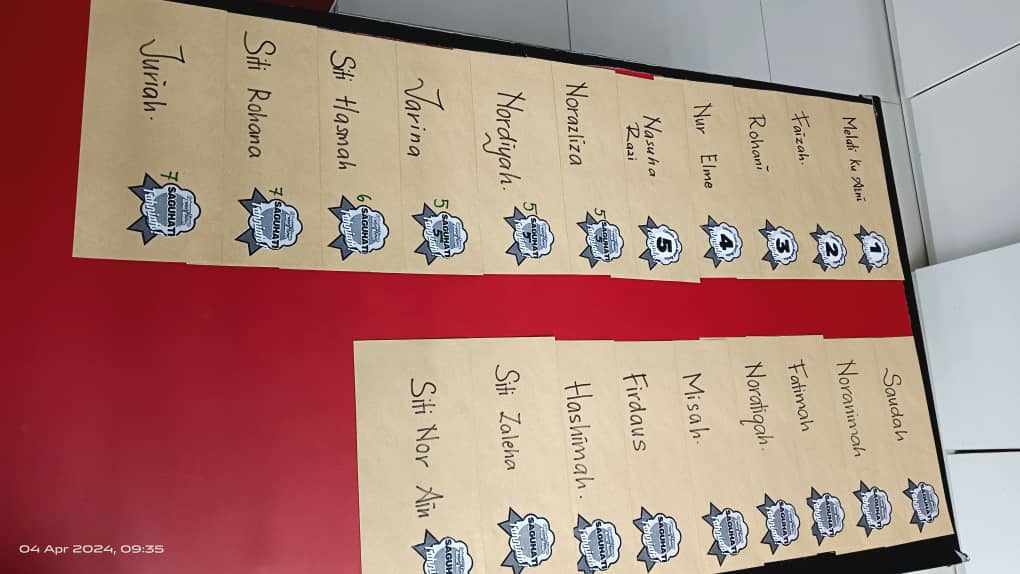 Melati Ku Aini
1
Faizah.
2
Rohani
3
Nur Elme
4
Nasuha
Razi
5
Norazliza
5
SAGUHATI
5
Nordiyah.
5
SAGUHATI
5
Jarina
5
SAGUHATI
5
Siti Hasmah
6
SAGUHATI
Siti Rohana
7
SAGUHATI
Juriah.
7
SAGUHATI
Saudah
SAGUHATI
Noranimah
SAGUHATI
Fatimah
SAGUHATI
Noratiqah.
SAGUHATI
Misah.
SAGUHATI
Firdaus
SAGUHATI
Hashimah.
SAGUHATI
Siti Zaleha
SAGUHATI
Siti Nor Ain
SAGUHATI
04 Apr 2024, 09:35